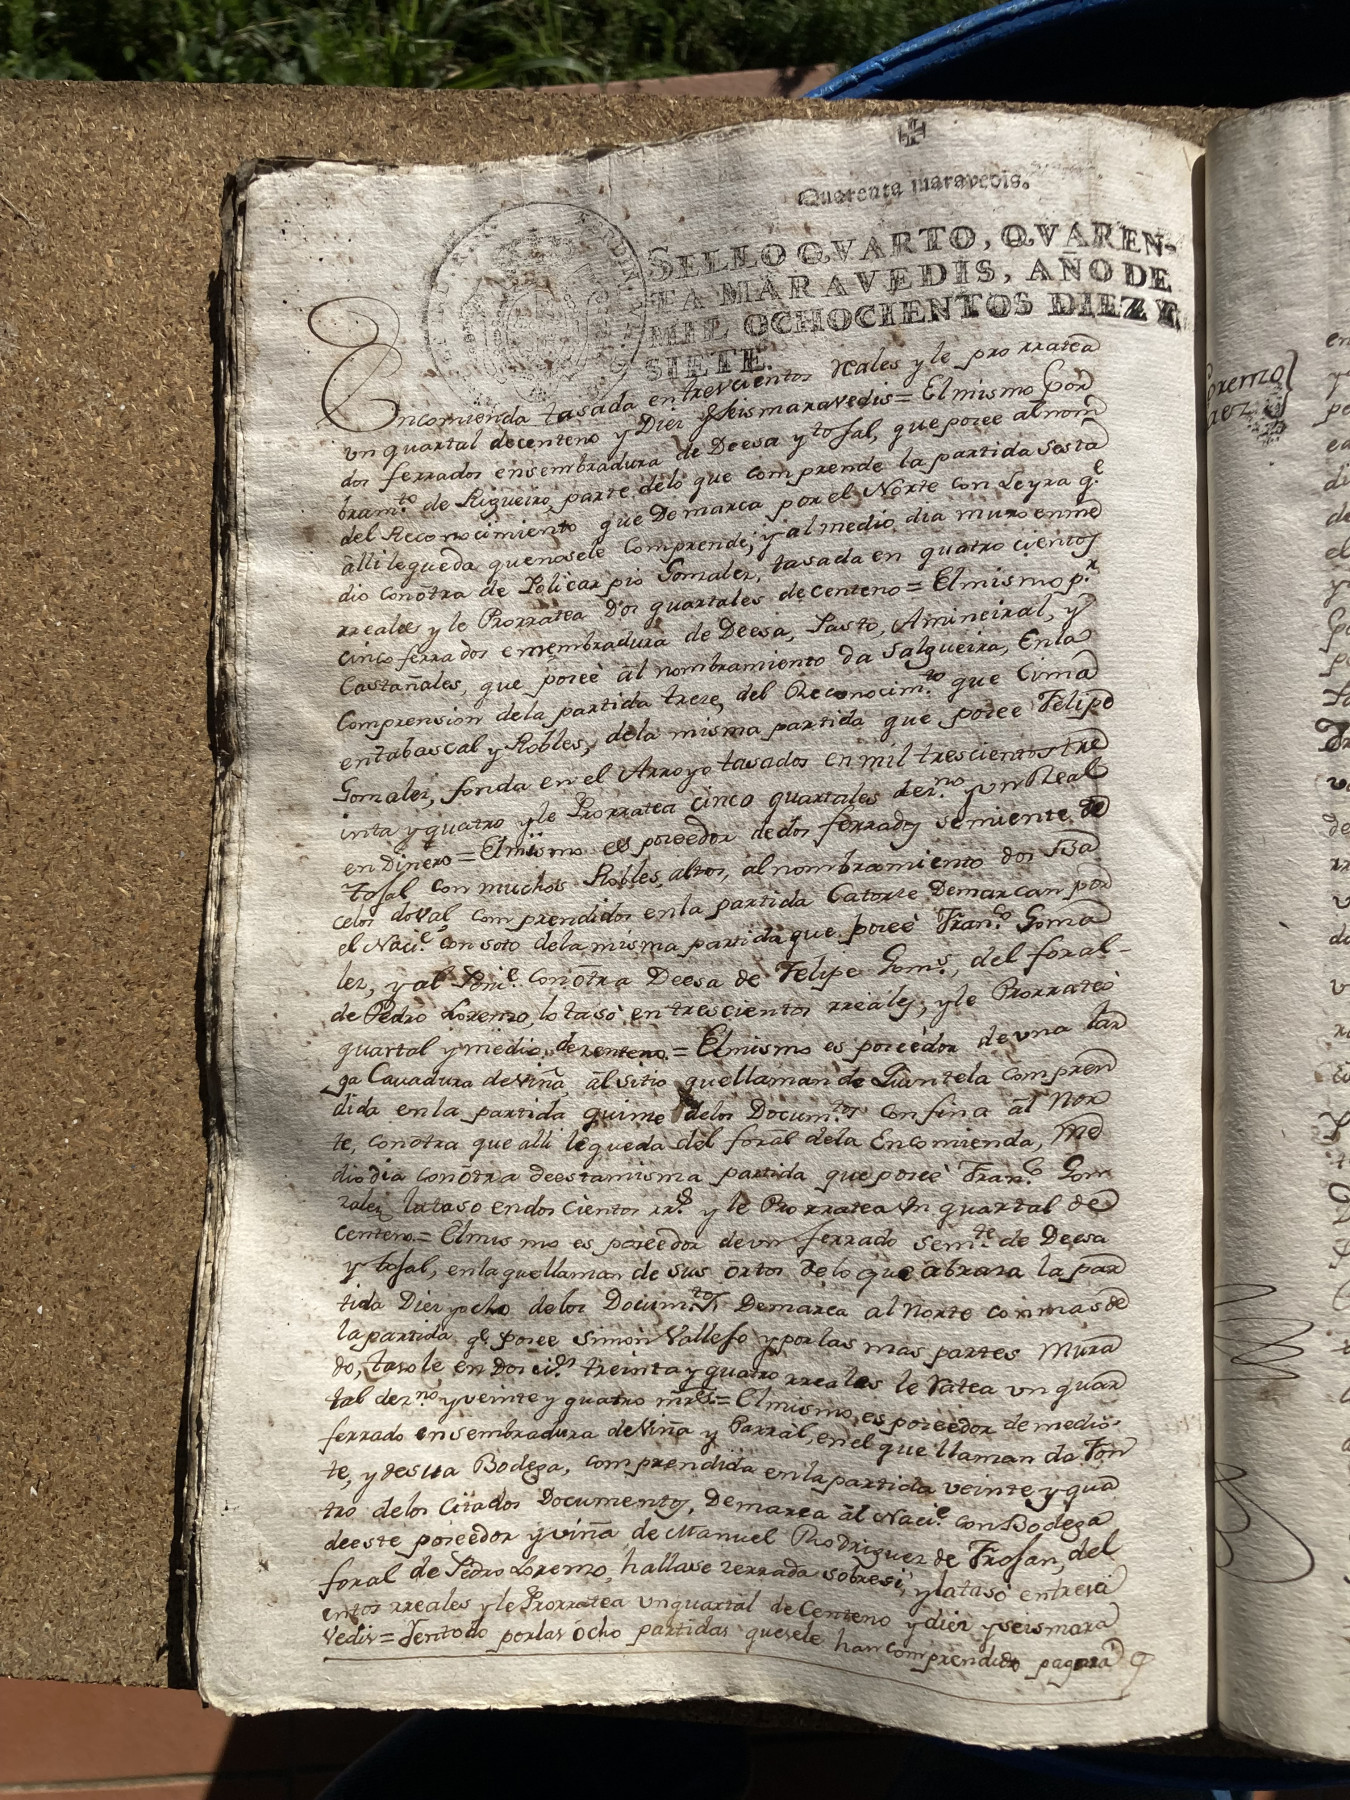 Quarenta maravedis.
SELLO QVARTO, QVAREN-
TA MARAVEDIS, AÑO DE
MIL OCHOCIENTOS DIEZ Y
SIETE.
Encomienda tasada en trescientos rreales y le prorratea
un quartal de centeno y Diez y seis maravedis = El mismo por
dos ferrados en sembradura de Deesa y tojal, que posee al nom
bram.to de Rigueiro parte delo que comprende la partida sesta
del Reconocimiento que Demarca por el Norte con Leyra q.e
alli le queda que no sele comprende, y al medio dia muro en me
dio con ôtra de Policarpio Gomalez, tasada en quatro cientos
rreales y le Prorratea Dos quartales de centeno = El mismo p.r
cinco ferrados en sembradura de Deesa, Pasto, Amineiral, y
Castañales, que poseè al nombramiento da Salgueira, En la
Comprension dela partida treze, del Reconocim.to que Cima
en tabascal y Robles, dela misma partida que posee Felipe
Gomalez, fonda en el Arroyo tasados en mil trescientos tre
inta y quatro y le Prorratea cinco quartales de z.no y vn Real
en Dinero = El mismo es poseedor de dos ferrados semiente de
Tojal con muchos Robles altos, al nombramiento dos
celos doval, comprendidos en la partida Catorce Demarcan por
el Naci.e con soto dela misma partida que poseè Fran.co Goma
lez, y al con ôtra Deesa de Felipe Gom.s, del foral-
de Pedro Lorenzo, lo tasó en trescientos rreales, y le Prorrateó
quartal y medio de zenteno. = El mismo es poseèdor de vna lar
ga Cauadura de viña, al sitio que llaman de Quintela compren
dida en la partida quime delos Docum.tos confina al Nor
te, con otra que alli le queda del foral dela Encomienda, Me
dio dia con ôtra de esta misma partida que poseè Fran.co Gom
zalez la taso en dos Cientos rr.s y le Prorratea Un quartal de
Centeno = El mismo es poseedor de vn ferrado sem.te de Deesa
y tojal, en la que llaman de sus ôrtos delo que abraza la par
tida Diez y ocho delos Docum.tos, Demarca al Norte con mas de
la partida q.e posee Simon Vallejo y por las mas partes Mura
do, tasole en Dos ci.os treinta y quatro rreales le Ratea un quar
tal de z.no y veinte y quatro mrs. = El mismo es poseedor de medio
ferrado en sembradura de Viña y Parral, en el que llaman da Fon
te, y desu Bodega, comprendida en la partida veinte y qua
tro delos Citados Documentos, Demarca al Naci.e con Bodega
de este poseedor y viña de Manuel Rodriguez de Trosan, del
foral de Pedro Lorenzo, hallase zerrada sobre si, y la tasó en tresci
entos rreales y le Prorratea un quartal de Centeno y diez y seis mara
vedis = Y en todo por las ôcho partidas que se le han comprendido pagara